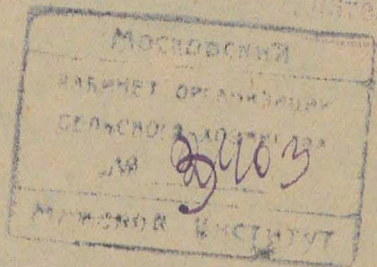 МОСКОВСКИЙ
КАБИНЕТ ОРГАНИЗАЦИИ
СЕЛЬСКОГО ХОЗЯЙСТВА
№
МЕЖЕВОЙ ИНСТИТУТ